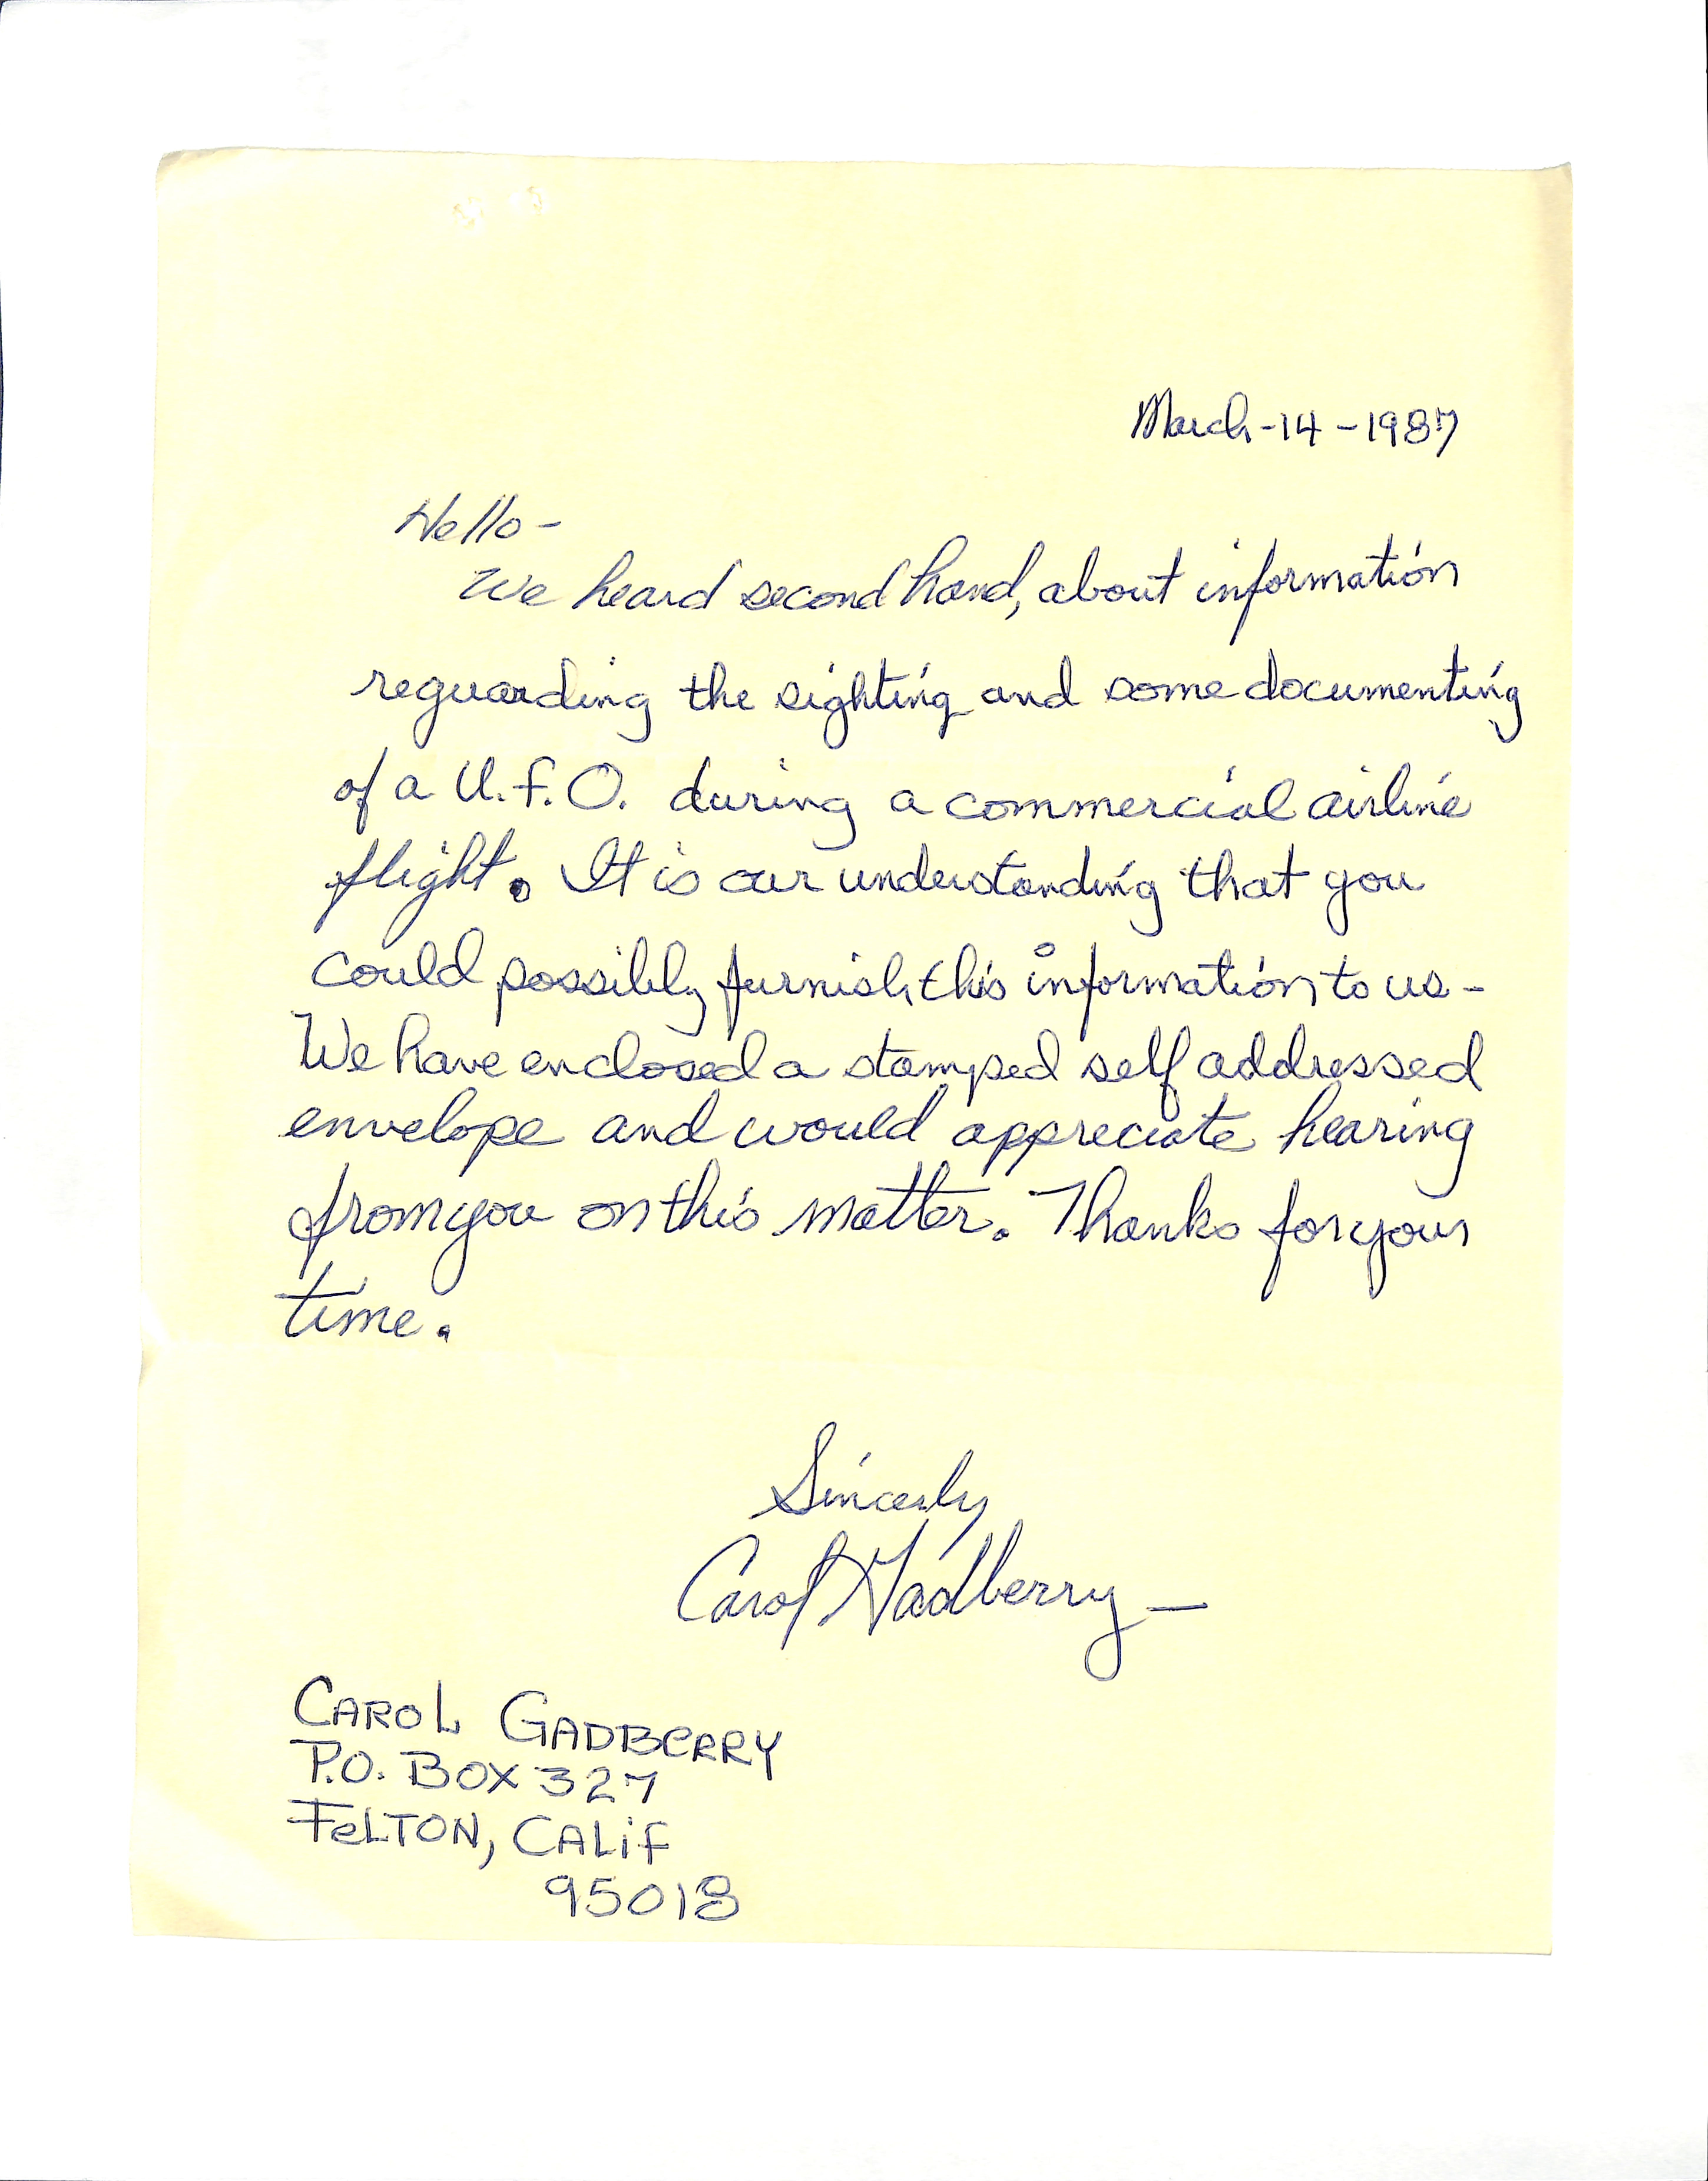 March-14-1987
Hello-
We heard second hand, about information
reguarding the sighting and some documenting
of a U.F.O. during a commercial airline
flight. It is our understanding that you
could possibly furnish this information to us-
We have enclosed a stamped self addressed
envelope and would appreciate hearing
from you on this matter. Thanks for your
time.
Sincerly
Carol Gadberry-
CAROL GADBERRY
P.O. BOX 327
FELTON, CALIF
95018